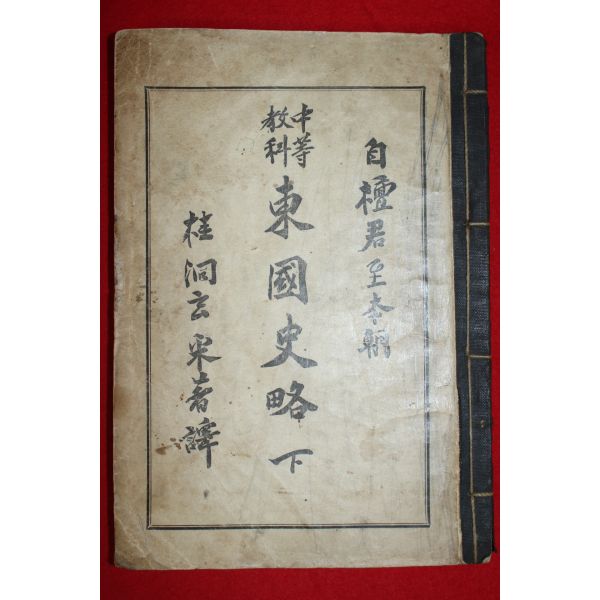 自檀君至本朝
中等教科 東國史略 下
桂洞玄采著譯